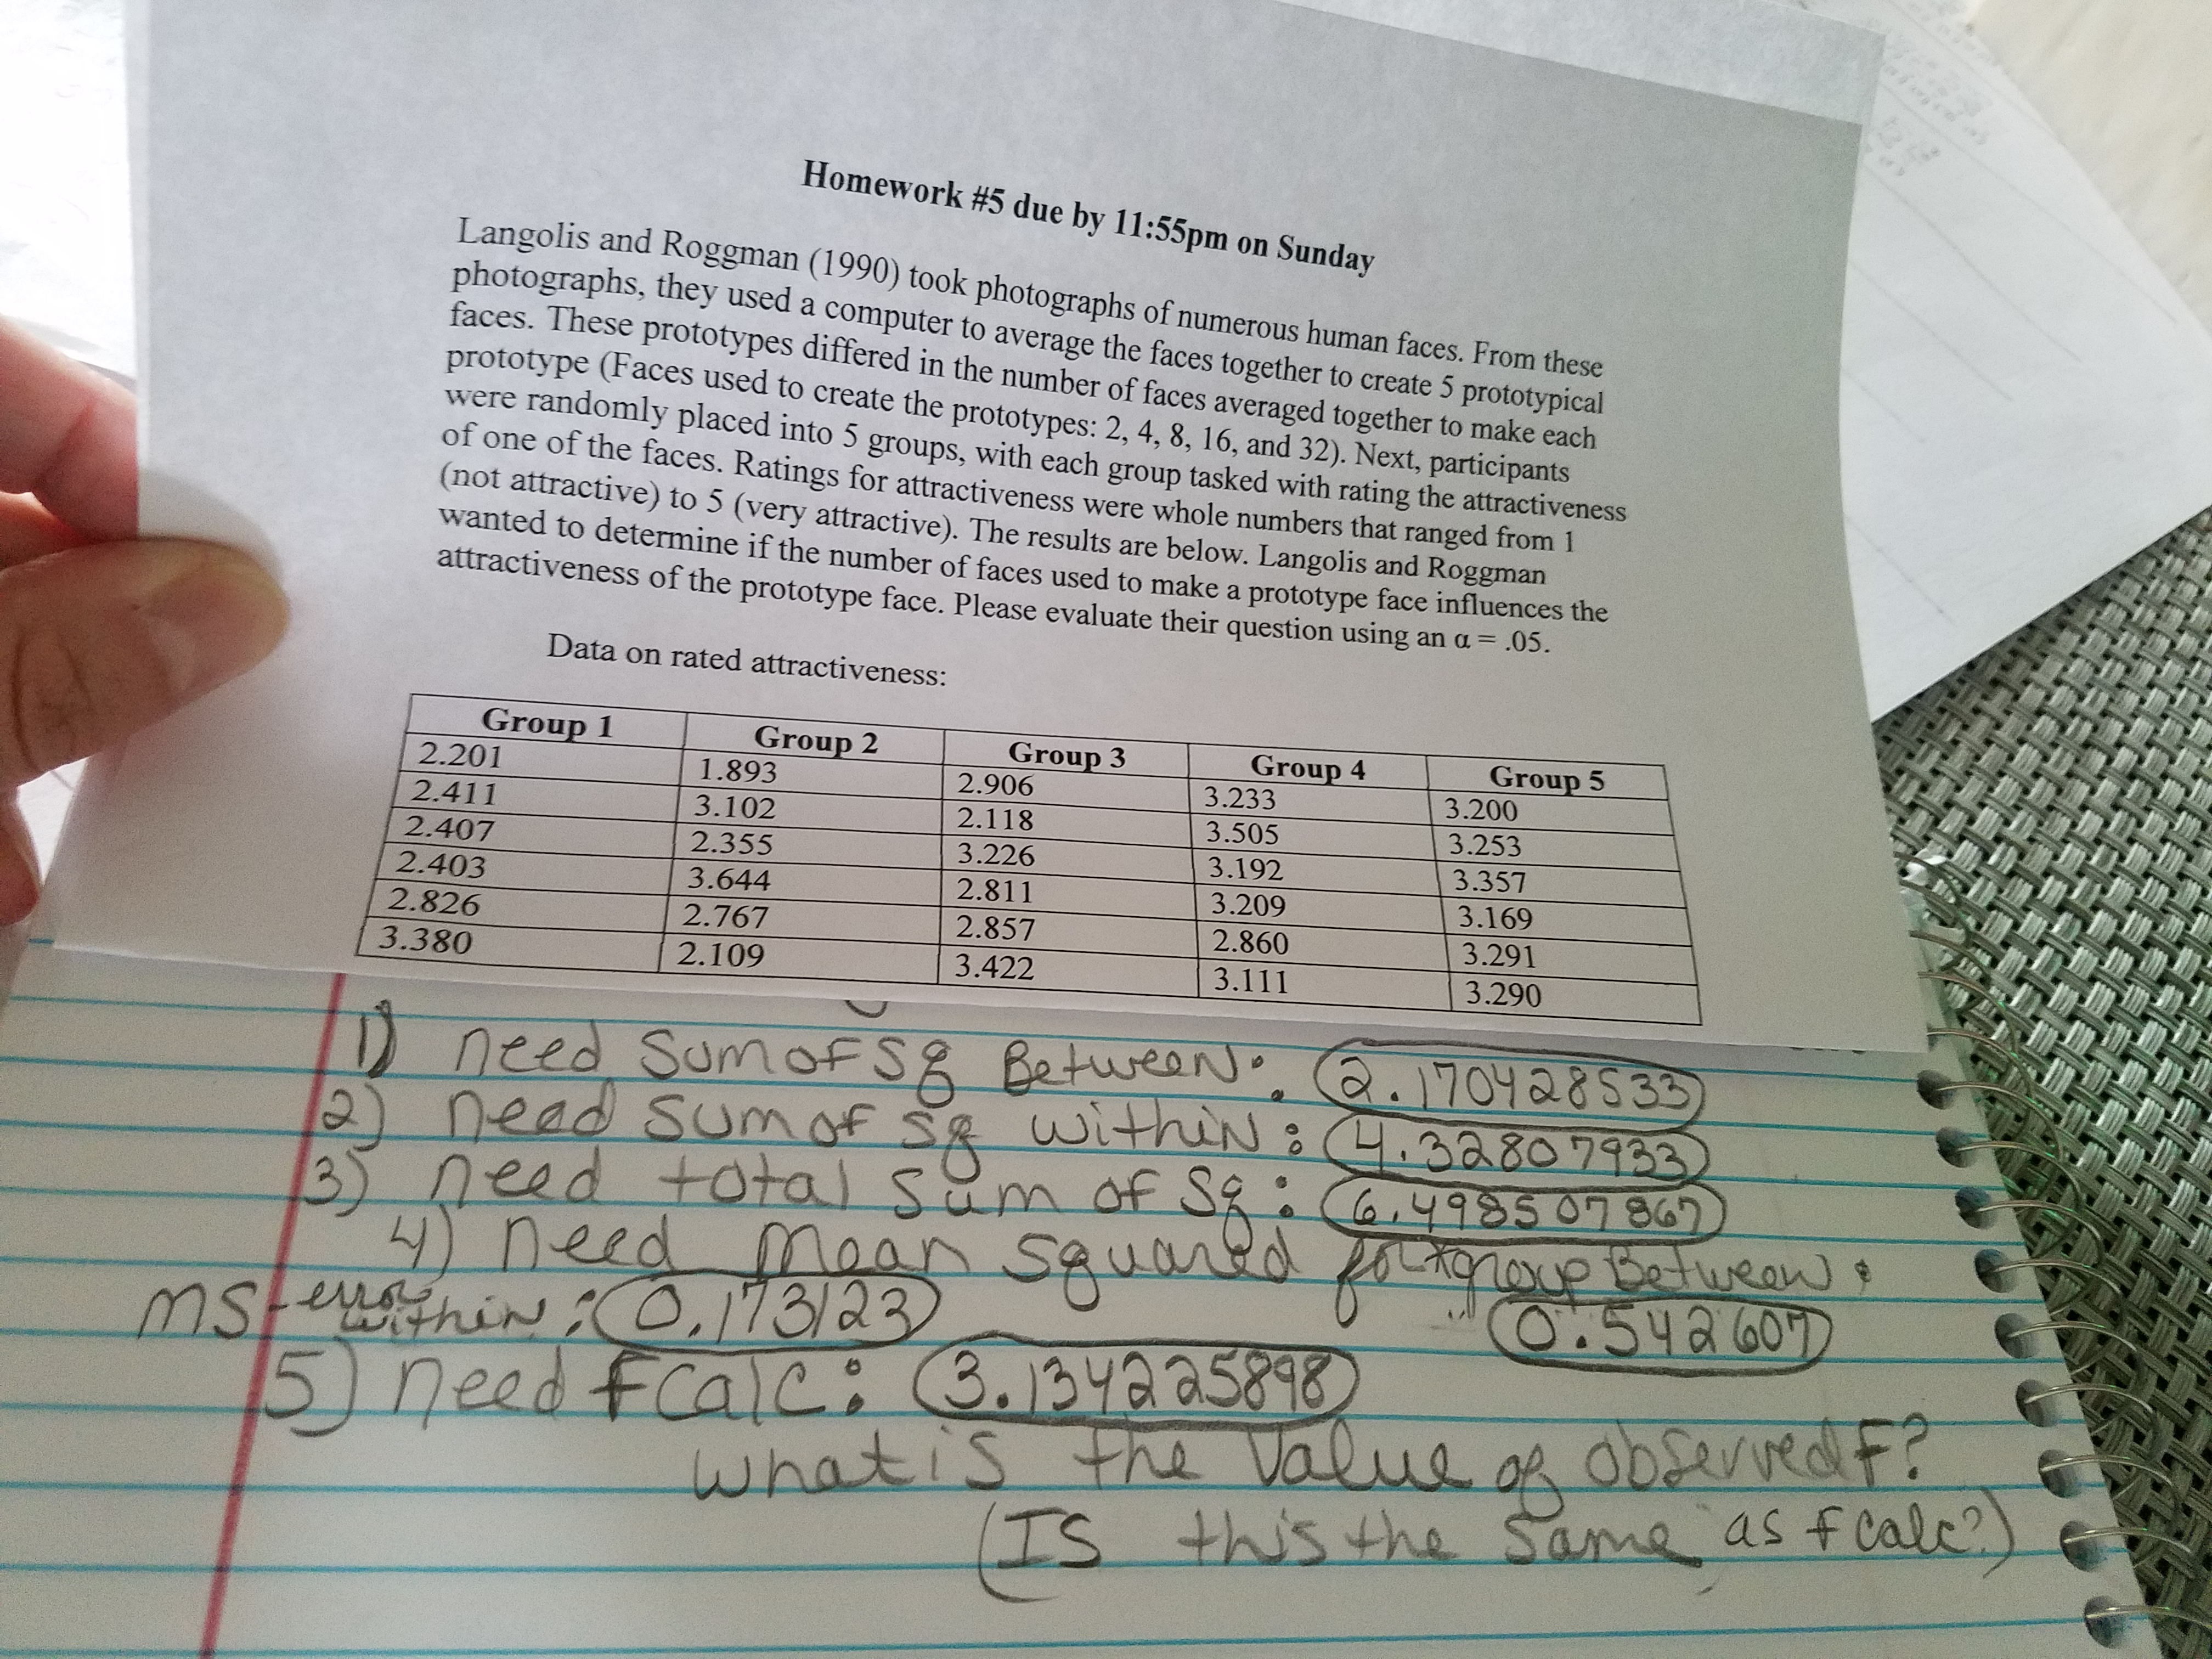 Homework #5 due by 11:55pm on Sunday
Langolis and Roggman (1990) took photographs of numerous human faces. From these
photographs, they used a computer to average the faces together to create 5 prototypical
faces. These prototypes differed in the number of faces averaged together to make each
prototype (Faces used to create the prototypes: 2, 4, 8, 16, and 32). Next, participants
were randomly placed into 5 groups, with each group tasked with rating the attractiveness
of one of the faces. Ratings for attractiveness were whole numbers that ranged from 1
(not attractive) to 5 (very attractive). The results are below. Langolis and Roggman
wanted to determine if the number of faces used to make a prototype face influences the
attractiveness of the prototype face. Please evaluate their question using an α = .05.
Data on rated attractiveness:
Group 1 Group 2 Group 3 Group 4 Group 5
2.201 1.893 2.906 3.233 3.200
2.411 3.102 2.118 3.505 3.253
2.407 2.355 3.226 3.192 3.357
2.403 3.644 2.811 3.209 3.169
2.826 2.767 2.857 2.860 3.291
3.380 2.109 3.422 3.111 3.290
1) need sum of sq Between: 2.170428533
2) need sum of sq within: 4.32807933
3) need total sum of sq: 6.498507867
4) need mean squared for group Between:
MS-error within: 0.173123 0.542607
5) need fcalc: 3.134225898
what is the value of observed F?
(Is this the same as fcalc?)